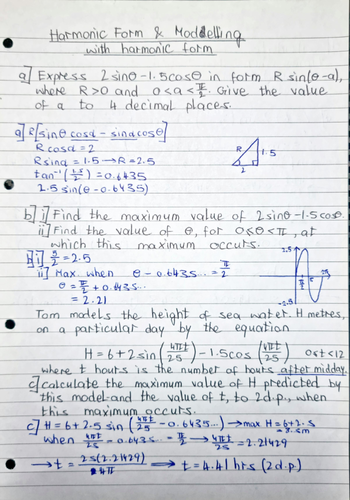 Harmonic Form & Modelling
with harmonic form
a] Express 2sinθ-1.5cosθ in form R sin(θ-a),
where R>0 and 0<a<π/2. Give the value
of a to 4 decimal places.
a] R[sinθ cosa - sina cosθ]
Rcosa = 2
Rsina = 1.5 → R = 2.5
tan⁻¹(1.5/2) = 0.6435
2.5 sin(θ - 0.6435)
R
1.5
2
b] i] Find the maximum value of 2sinθ-1.5cosθ.
ii] Find the value of θ, for 0≤θ<π, at
which this maximum occurs.
b] i] = 2.5
ii] Max. when θ - 0.6435... = π/2
θ = π/2 + 0.6435...
= 2.21
2.5
-2.5
Tom models the height of sea water, H metres,
on a particular day by the equation
H = 6 + 2sin(4πt/25) - 1.5cos(4πt/25) 0≤t<12
where t hours is the number of hours after midday.
c] calculate the maximum value of H predicted by
this model and the value of t, to 2d.p., when
this maximum occurs.
c] H = 6 + 2.5 sin(4πt/25 - 0.6435...) → max H = 6 + 2.5
= 8.5m
when 4πt/25 - 0.6435... = π/2 → 4πt/25 = 2.21429
→ t = 25(2.21429)/4π ⇒ t = 4.41 hrs (2d.p)